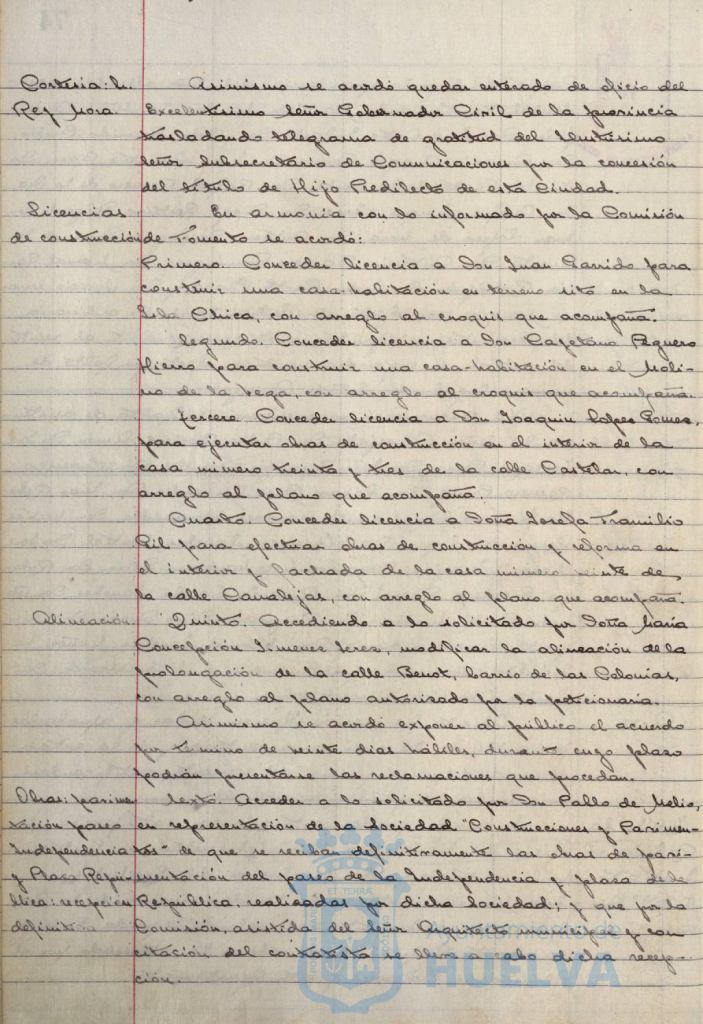 Cortesia: Sr. Asimismo se acordó quedar enterado de oficio del
Rey Mora. Excelentisimo Señor Gobernador Civil de la provincia
trasladando telegrama de gratitud del Ilustrisimo
Señor Subsecretario de Comunicaciones por la concesión
del titulo de Hijo Predilecto de esta Ciudad.
Licencias En armonia con lo informado por la Comisión
de construcción de Fomento se acordó:
Primero. Conceder licencia a Don Juan Garrido para
construir una casa-habitación en terreno sito en la
Isla Chica, con arreglo al croquis que acompaña.
Segundo. Conceder licencia a Don Cayetano Aguero
Hierro para construir una casa-habitación en el Moli-
no de la Vega, con arreglo al croquis que acompaña.
Tercero Conceder licencia a Don Joaquin Lopez Gomez,
para ejecutar obras de construcción en el interior de la
casa número treinta y tres de la calle Castelar, con
arreglo al plano que acompaña.
Cuarto. Conceder licencia a Doña Josefa
Gil para efectuar obras de construcción y reforma en
el interior y fachada de la casa número veinte de
la calle Canalejas, con arreglo al plano que acompaña.
Alineación. Quinto. Accediendo a lo solicitado por Doña Maria
Concepción Jimenez Jerez, modificar la alineación de la
prolongación de la calle Benot, barrio de las Colonias,
con arreglo al plano autorizado por la peticionaria.
Asimismo se acordó exponer al público el acuerdo
por termino de veinte dias hábiles, durante cuyo plazo
podrán presentarse las reclamaciones que procedan.
Obras: pavime Sexto. Acceder a lo solicitado por Don Pablo de
tación paseo en representación de la Sociedad "Construcciones y Pavimen-
Independencia tos" de que se reciban definitivamente las obras de pavi-
y Plaza Repú- mentación del paseo de la Independencia y plaza de la
blica: recepción República, realizadas por dicha Sociedad; y que por la
definitiva Comisión, asistida del Señor Arquitecto municipal y con
citación del contratista se lleve a cabo dicha recep-
ción.
HUELVA